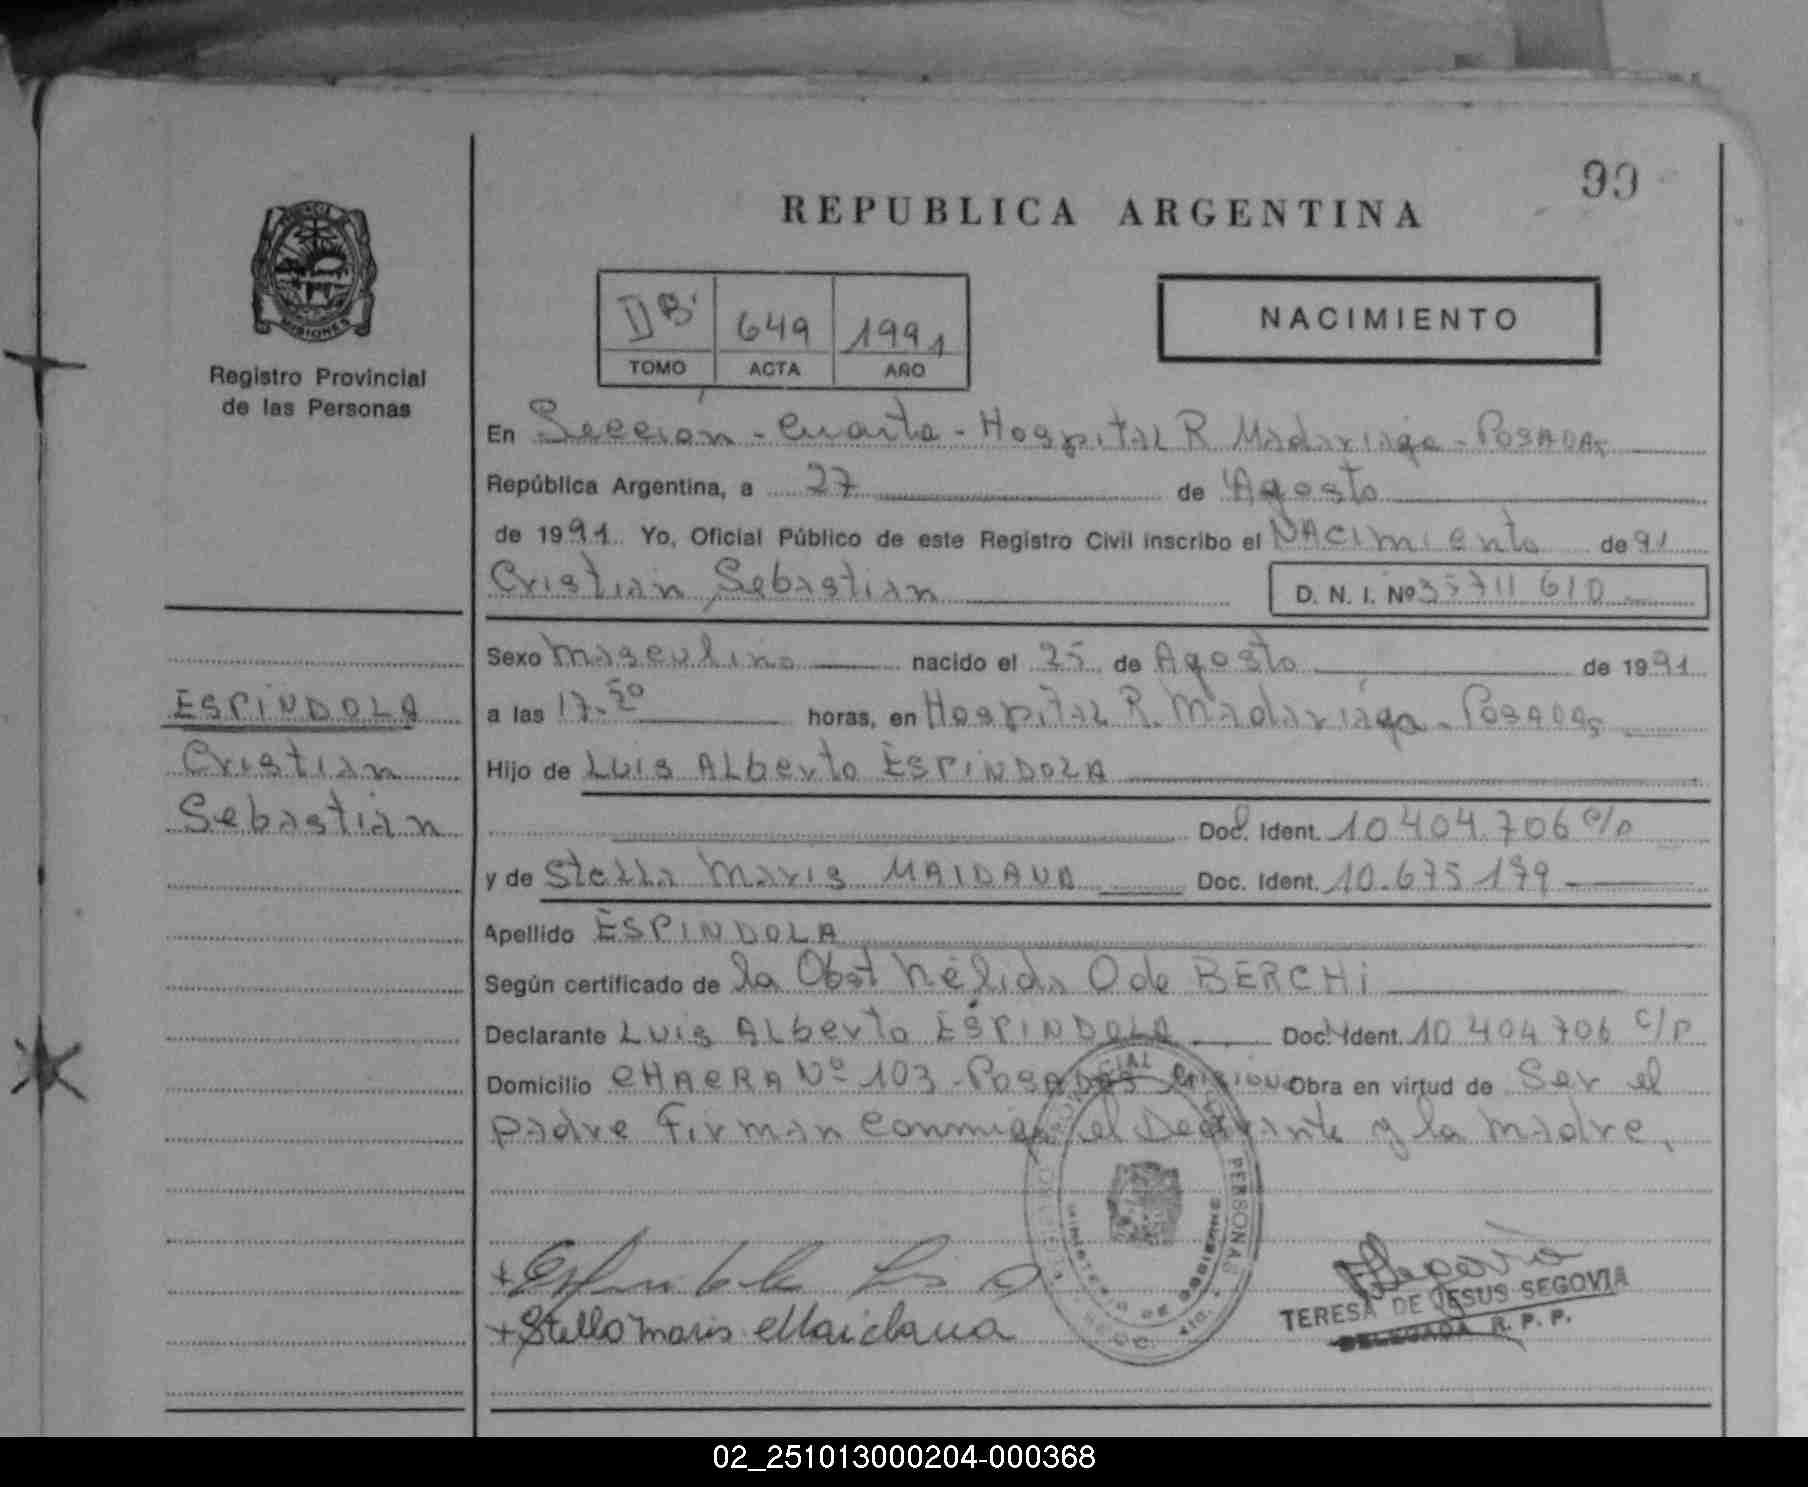 99
REPUBLICA ARGENTINA
MISIONES
649 1991
TOMO ACTA AÑO
NACIMIENTO
Registro Provincial
de las Personas
En Sección - Cuarta - Hospital R Madariaga - Posadas
República Argentina, a 27 de Agosto
de 1991 Yo, Oficial Público de este Registro Civil inscribo el Nacimiento de 91
Cristian Sebastian D. N. I. Nº 35711610
Sexo masculino nacido el 25 de Agosto de 1991
a las 17.50 horas, en Hospital R. Madariaga - Posadas
Hijo de Luis Alberto ESPINDOLA
Doc. Ident. 10.404.706 c/p
y de Stella Maris MAIDANA Doc. Ident. 10.675.179
Apellido ESPINDOLA
Según certificado de la Obst Nélida O de BERCHI
Declarante Luis Alberto ESPINDOLA Doc. Ident. 10 404 706 C/P
Domicilio CHACRA Nº 103 - Posadas Obra en virtud de Ser el
padre Firman Conmigo el Declarante y la madre.
ESPINDOLA
Cristian
Sebastian
PERSONAS
MINISTERIO DE GOBIERNO
+ Espindola Luis A
+ Stella Maris Maidana
Segovia
TERESA DE JESUS SEGOVIA
DELEGADA R. P. P.
02_251013000204-000368